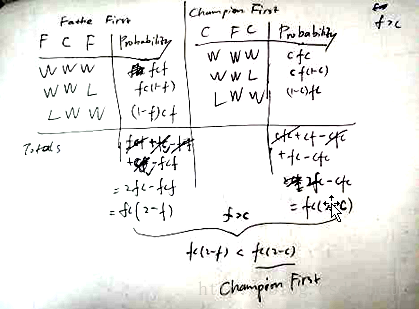 Fathe First
Champion First
f>c
F C F Probability
C F C Probability
W W W fcf
W W W cfc
W W L fc(1-f)
W W L cf(1-c)
L W W (1-f)cf
L W W (1-c)fc
Totals
+cf-fcf
+cf-cfc
+fc-cfc
=2fc-fcf
2fc-cfc
=fc(2-f)
f>c
fc(2-f) < fc(2-c)
Champion First